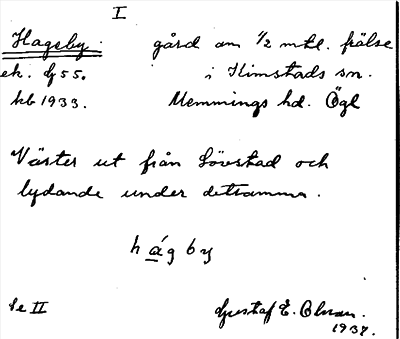 I
Hagsby. gård om 1/2 mtl. frälse
ek. G 55. i Kimstads sn.
kb 1933. Memmings hd. Ögl
Väster ut från Lövstad och
lydande under detsamma.
hágby
Se II Gustaf E. Olsson.
1937.